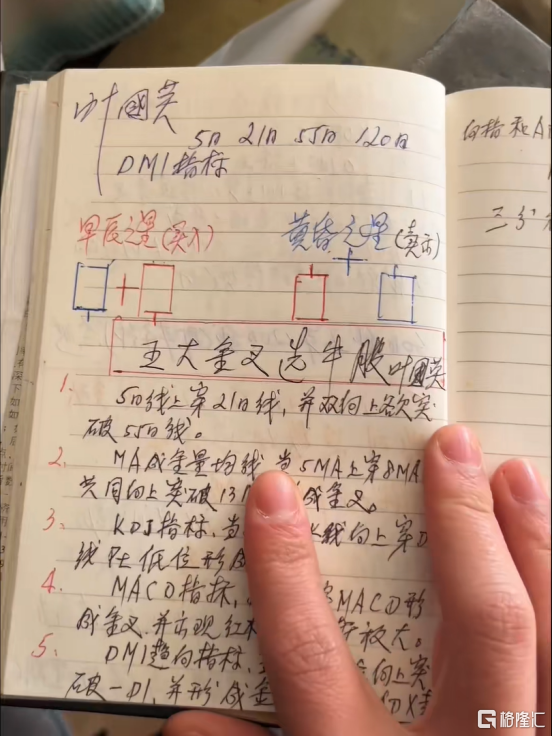 叶國英
5日 21日 55日 120日
DMI指标
早辰之星(买入)
黄昏之星(卖出)
五大金叉选牛股叶國英
1. 5日线上穿21日线，并双向上各次突
破55日线。
2. MA成金量均线，当5MA上穿8MA
共同向上突破13 成金叉。
3. KDJ指标，当 线向上穿D
线在低位形成
4. MACD指标， MACD形
成金叉，并出现红 放大。
5. DMI趋向指标， 向上突
破-DI，并形成金 DX
向指和A
三多
格隆汇